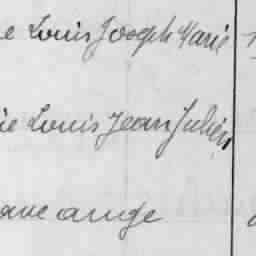 e Louis Joseph Marie
ie Louis Jean Julien
ave ange